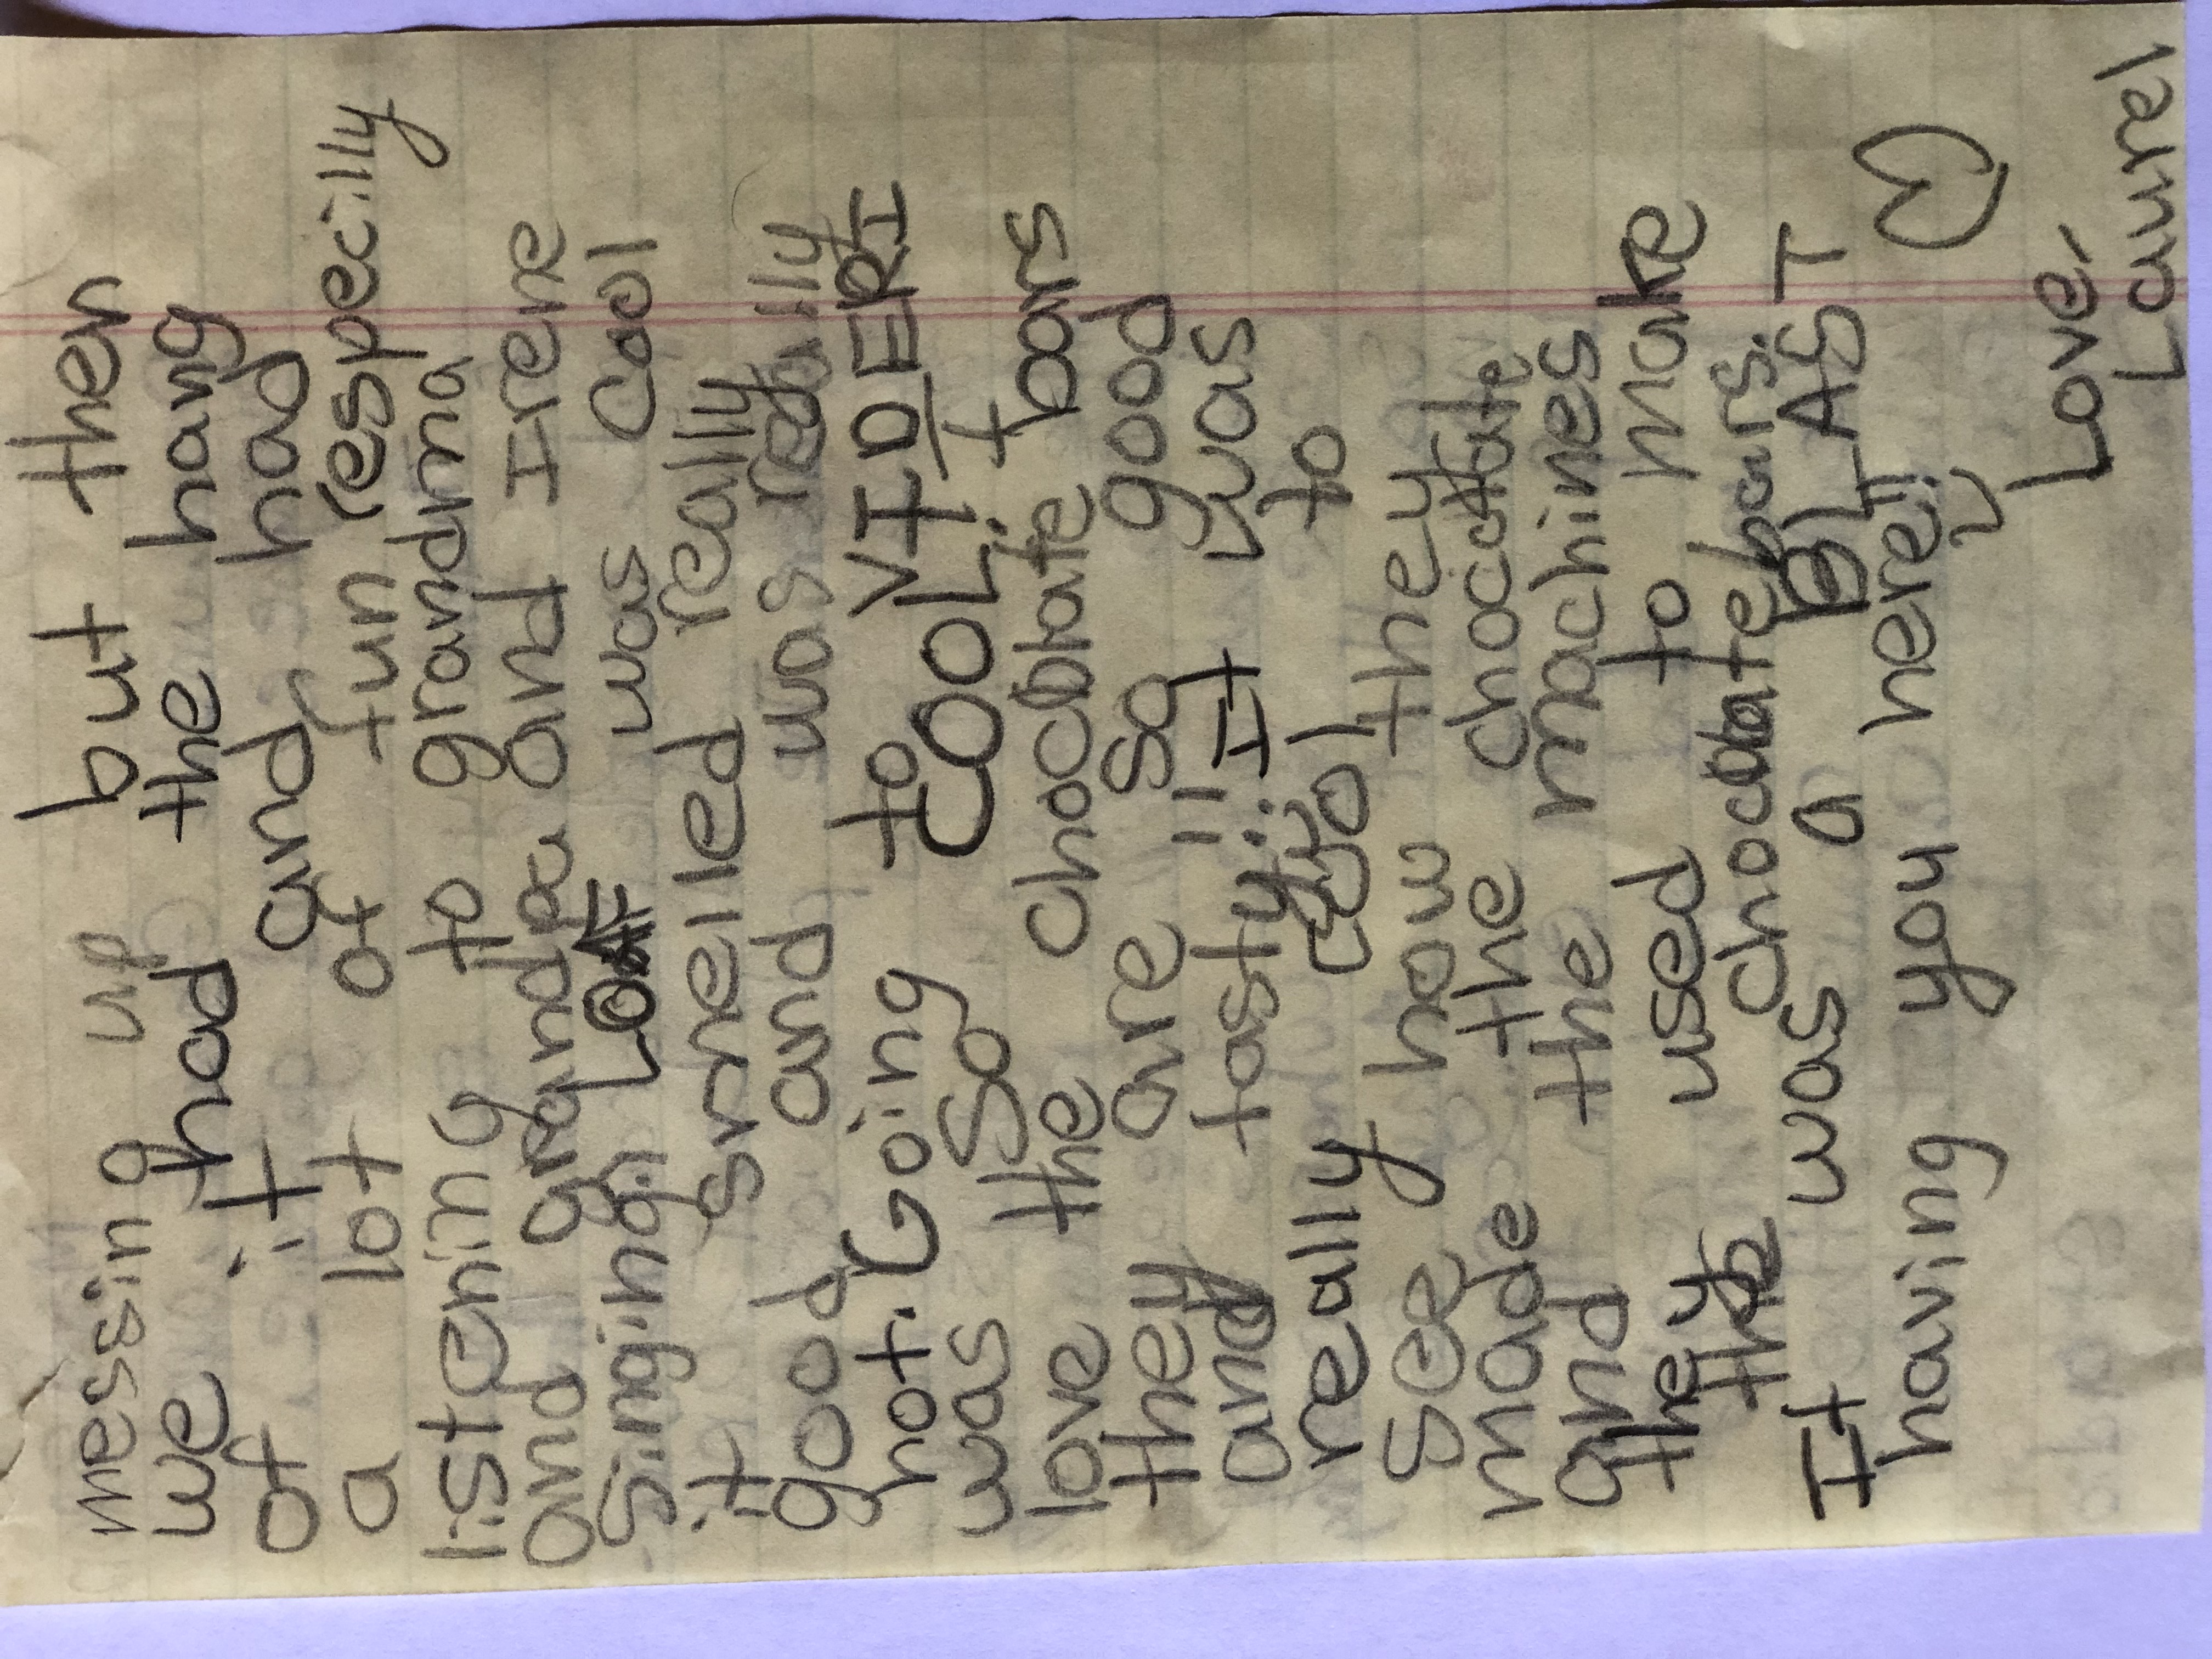 messing up but then
we had the hang
of it and had
a lot of fun, (especilly
listening to grandma
and grandpa and Irene
Singing.) LOAF was cool
it smelled really
good and was really
hot. Going to VIDERI
was So COOL! I
love the chocolate bars
they are so good
and tasty!! It was
really cool to
see how they
made the chocolate
and the machines
they used to make
the chocolate bars.
It was a BLAST
having you here!!
Love,
Laurel